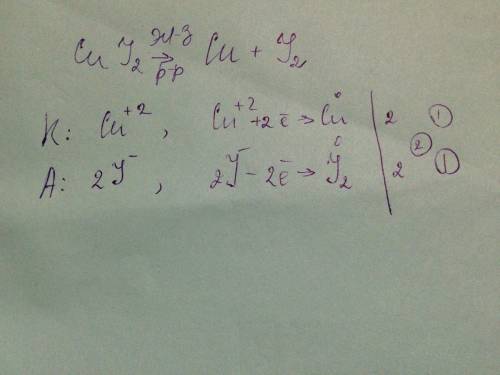 CuJ₂ →(эл-з / р-р) Cu + J₂
К: Cu⁺², Cu⁺² + 2ē → Cu⁰ | 2 ② ①
А: 2J⁻, 2J⁻ - 2ē → J₂⁰ | 2 ①